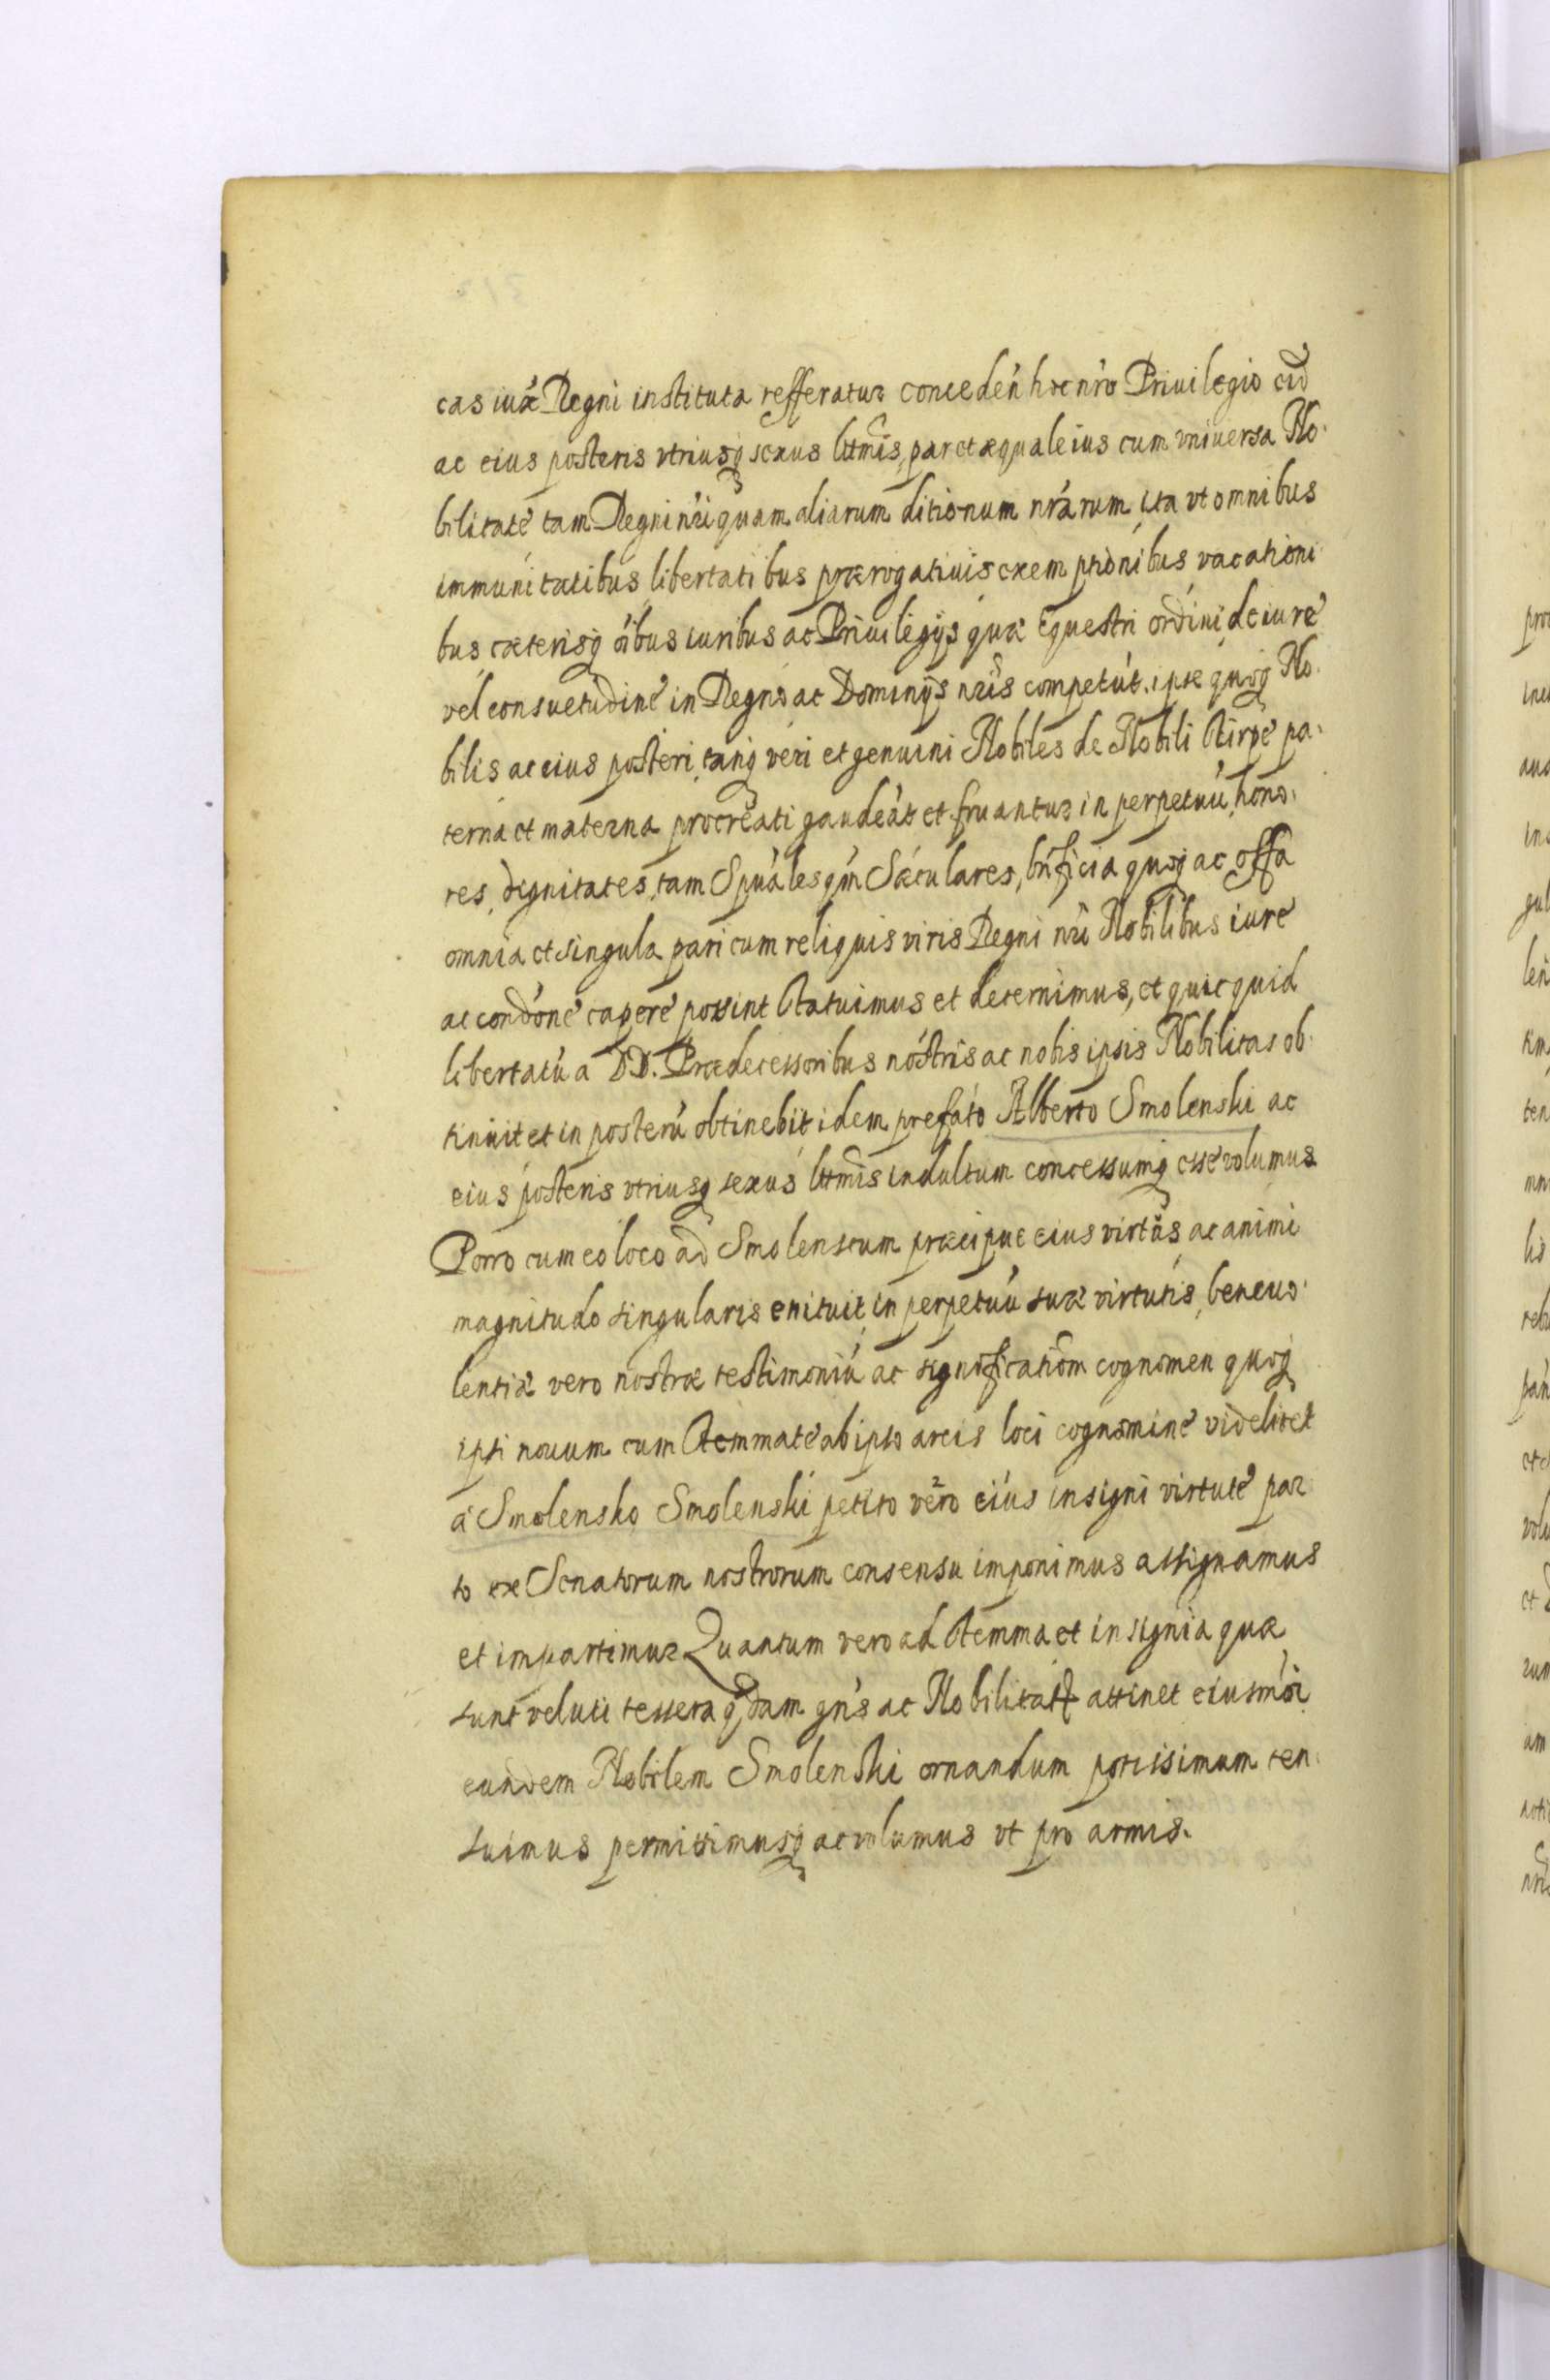 cas iuxa Regni instituta refferatur conceden hoc nro Priuilegio eid
ac eius posteris vtriusq sexus lttmis, par et æquale ius cum vniuersa No-
bilitate tam Regni nri quam aliarum ditionum nrarum ita vt omnibus
immunitatibus libertatibus prærogatiuis exemptionibus vacationi-
bus cæterisq oibus iuribus ac Priuilegijs quæ Equestri ordini de iure
vel consuetudine in Regno ac Dominijs nris competut. ipse quoq No-
bilis ac eius posteri, tanq veri et genuini Nobiles de Nobili stirpe pa-
terna et materna procreati gaudeat et fruantur in perpetuu, hono-
res, dignitates, tam Spuales qm Sæculares, bnficia quoq ac offa
omnia et singula pari cum reliquis viris Regni nri Nobilibus iure
ac condone capere possint statuimus et decernimus, et quicquid
libertatu a DD. Prædecessoribus nostris ac nobis ipsis Nobilitas ob-
tinuit et in posteru obtinebit idem prefato Alberto Smolenski ac
eius posteris vtriusq sexus lttmis indultum concessumq esse volumus
Porro cum eo loco ad Smolenscum præcipue eius virtus ac animi
magnitudo singularis enituit, in perpetuu suæ virtutis, beneuo-
lentiæ vero nostræ testimoniu ac significatiom cognomen quoq
ipsi nouum cum stemmate ab ipso arcis loci cognomine videlicet
a Smolensko Smolenski petito vero eius insigni virtute par-
to ex Senatorum nostrorum consensu imponimus assignamus
et impartimur Quantum vero ad stemma et insignia quæ
sunt veluti tessera qdam gns ac Nobilitat attinet eiusmoi
eundem Nobilem Smolenski ornandum potissimum cen-
suimus permittimusq ac volumus vt pro armis.